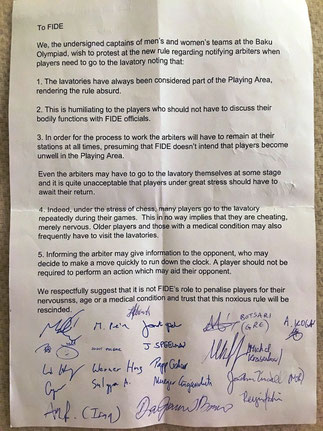 To FIDE
We, the undersigned captains of men's and women's teams at the Baku
Olympiad, wish to protest at the new rule regarding notifying arbiters when
players need to go to the lavatory noting that:
1. The lavatories have always been considered part of the Playing Area,
rendering the rule absurd.
2. This is humiliating to the players who should not have to discuss their
bodily functions with FIDE officials.
3. In order for the process to work the arbiters will have to remain at their
stations at all times, presuming that FIDE doesn't intend that players become
unwell in the Playing Area.
Even the arbiters may have to go to the lavatory themselves at some stage
and it is quite unacceptable that players under great stress should have to
await their return.
4. Indeed, under the stress of chess, many players go to the lavatory
repeatedly during their games. This in no way implies that they are cheating,
merely nervous. Older players and those with a medical condition may also
frequently have to visit the lavatories.
5. Informing the arbiter may give information to the opponent, who may
decide to make a move quickly to run down the clock. A player should not be
required to perform an action which may aid their opponent.
We respectfully suggest that it is not FIDE's role to penalise players for their
nervousnss, age or a medical condition and trust that this noxious rule will be
rescinded.
BOTSARI
(GRE)
J SPEELMAN
Werner Hug
(Iraq)